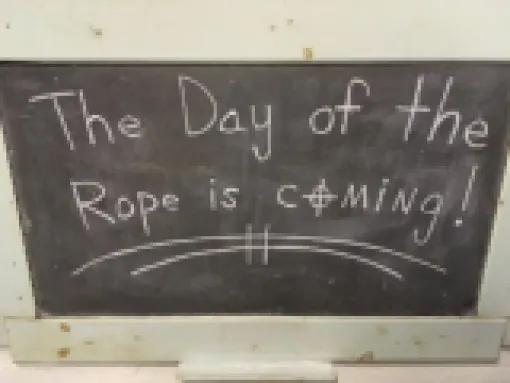 The Day of the
Rope is C⌖MiNg!